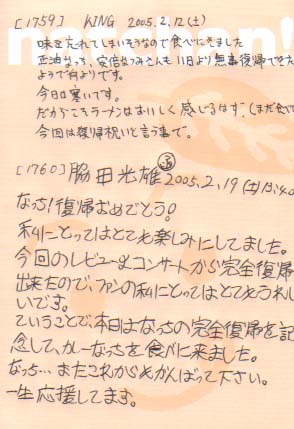 [1759] KING 2005.2.12(土)
味を忘れてしまいそうなので食べにきました
安倍なつみさんも 11日より無事復帰できた
ようで何よりです。
今日は寒いです。
だからこそラーメンはおいしく感じるはず。(まだ食べて
今回は復帰祝いと言う事で。
[1760] 脇田光雄 2005.2.19(土)
なっち!復帰おめでとう!
私にとってはとても楽しみにしてました。
今回のレビュー&コンサートから完全復帰
出来たので、ファンの私にとってはとてもうれし
いです。
ていうことで、本日はなっちの完全復帰を記
念して、カレーなっちを食べに来ました。
なっち…またこれからもがんばって下さい。
一生応援してます。